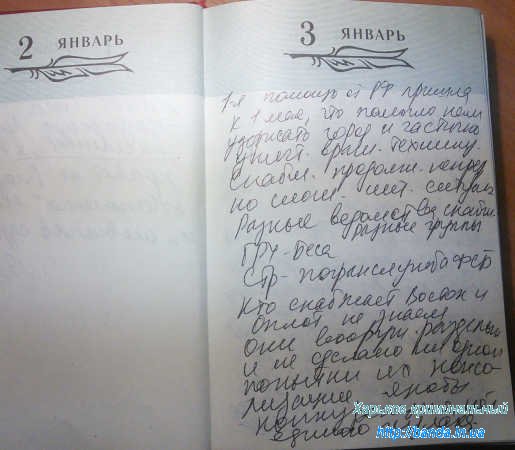 2 ЯНВАРЬ
3 ЯНВАРЬ
1-я помощь от РФ пришла
к 1 мая, что помогло нам
удержать город и частично
уничт. броне. технику.
Снабж. продолж. непрер
но
Разные ведомства снабж.
разные группы
ГРУ - Беса
СТР - погранслужба ФСБ
Кто снабжает Восток и
Оплот не знаем
они вооруж. раздельно
и не сделано ни одной
попытки их консо-
лидации
единого
Харьков криминальный
http://banda.in.ua